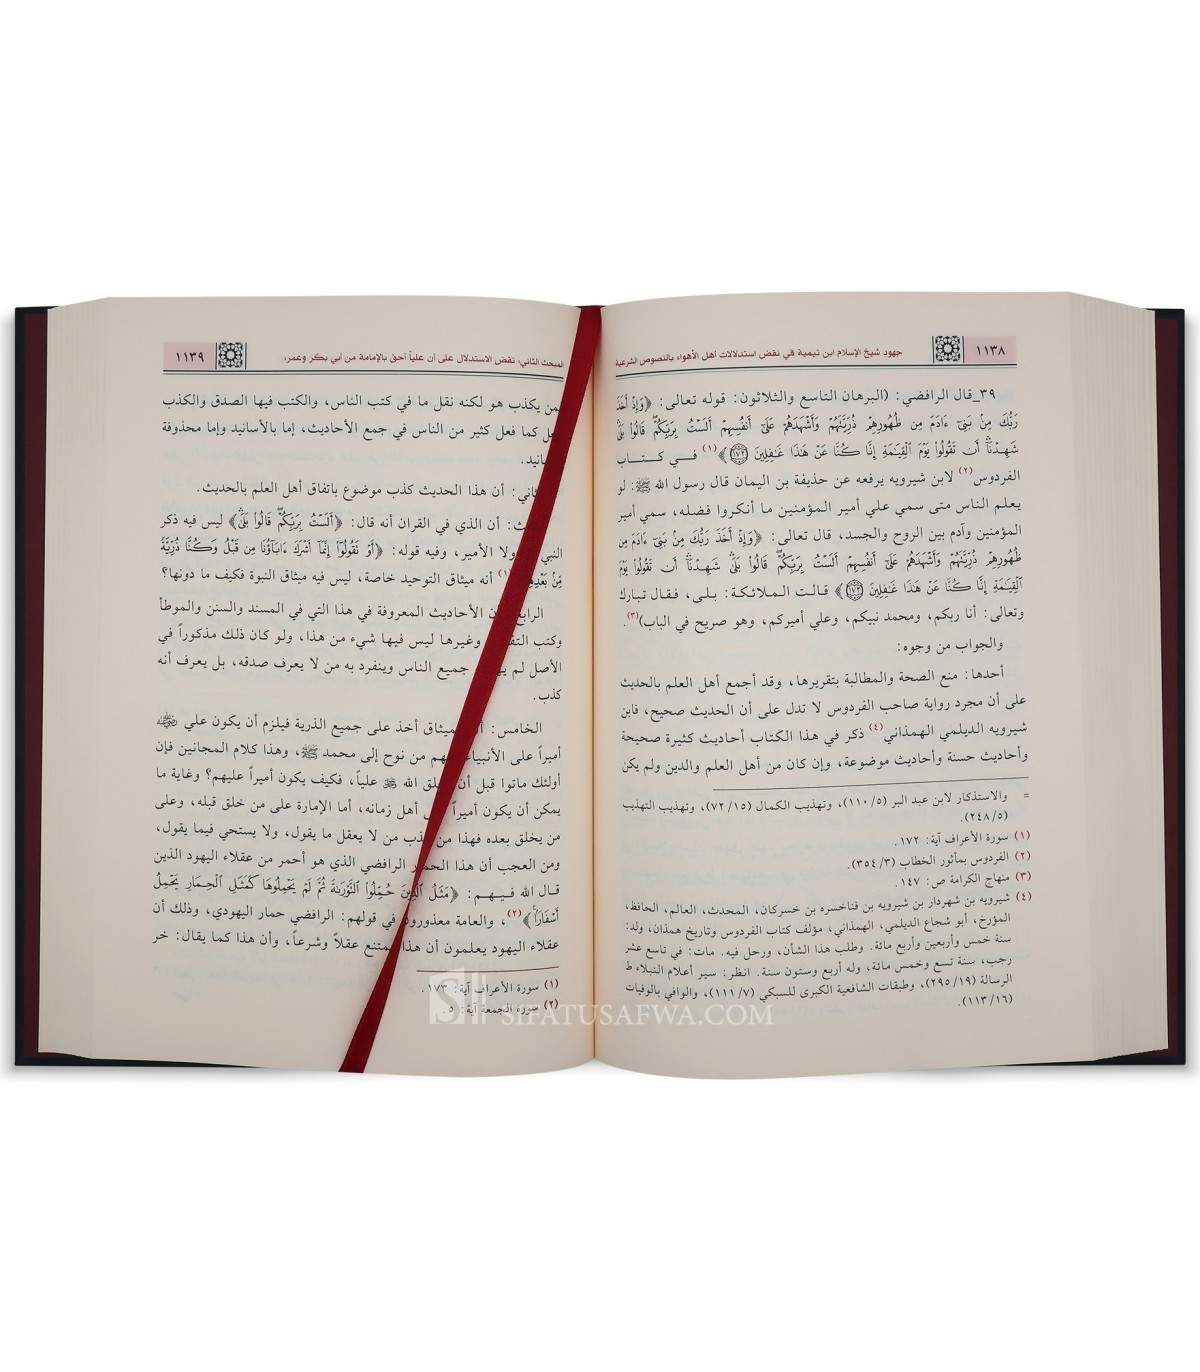 ١١٣٨
جهود شيخ الإسلام ابن تيمية في نقض استدلالات أهل الأهواء بالنصوص الشرعية
٣٩_قال الرافضي: (البرهان التاسع والثلاثون: قوله تعالى: ﴿وَإِذْ أَخَذَ
رَبُّكَ مِنْ بَنِي ءَادَمَ مِن ظُهُورِهِمْ ذُرِّيَّتَهُمْ وَأَشْهَدَهُمْ عَلَىٰ أَنفُسِهِمْ أَلَسْتُ بِرَبِّكُمْ قَالُوا بَلَىٰ
شَهِدْنَا أَن تَقُولُوا يَوْمَ الْقِيَامَةِ إِنَّا كُنَّا عَنْ هَذَا غَافِلِينَ ﴿١٧٢﴾﴾(١) فــي كــتــاب
الفردوس(٢) لابن شيرويه يرفعه عن حذيفة بن اليمان قال رسول الله ﷺ: لو
يعلم الناس متى سمي علي أمير المؤمنين ما أنكروا فضله، سمي أمير
المؤمنين وآدم بين الروح والجسد، قال تعالى: ﴿وَإِذْ أَخَذَ رَبُّكَ مِنْ بَنِي ءَادَمَ مِن
ظُهُورِهِمْ ذُرِّيَّتَهُمْ وَأَشْهَدَهُمْ عَلَىٰ أَنفُسِهِمْ أَلَسْتُ بِرَبِّكُمْ قَالُوا بَلَىٰ شَهِدْنَا أَن تَقُولُوا يَوْمَ
الْقِيَامَةِ إِنَّا كُنَّا عَنْ هَذَا غَافِلِينَ ﴿١٧٢﴾﴾ قالت الملائكة: بلى، فقال تبارك
وتعالى: أنا ربكم، ومحمد نبيكم، وعلي أميركم، وهو صريح في الباب)(٣).
والجواب من وجوه:
أحدها: منع الصحة والمطالبة بتقريرها، وقد أجمع أهل العلم بالحديث
على أن مجرد رواية صاحب الفردوس لا تدل على أن الحديث صحيح، فابن
شيرويه الديلمي الهمذاني(٤) ذكر في هذا الكتاب أحاديث كثيرة صحيحة
وأحاديث حسنة وأحاديث موضوعة، وإن كان من أهل العلم والدين ولم يكن
= والاستذكار لابن عبد البر (١١٠/٥)، وتهذيب الكمال (٧٢/١٥)، وتهذيب التهذيب
(٢٤٨/٥).
(١) سورة الأعراف آية: ١٧٢.
(٢) الفردوس بمأثور الخطاب (٣٥٤/٣).
(٣) منهاج الكرامة ص: ١٤٧.
(٤) شيرويه بن شهردار بن شيرويه بن فناخسره بن خسركان، المحدث، العالم، الحافظ،
المؤرخ، أبو شجاع الديلمي، الهمذاني، مؤلف كتاب الفردوس وتاريخ همذان، ولد:
سنة خمس وأربعين وأربع مائة. وطلب هذا الشأن، ورحل فيه. مات: في تاسع عشر
رجب، سنة تسع وخمس مائة، وله أربع وستون سنة. انظر: سير أعلام النبلاء ط
الرسالة (٢٩٥/١٩)، وطبقات الشافعية الكبرى للسبكي (١١١/٧)، والوافي بالوفيات
(١١٣/١٦).
المبحث الثاني: نقض الاستدلال على أن علياً أحق بالإمامة من أبي بكر وعمر:
١١٣٩
ممن يكذب هو لكنه نقل ما في كتب الناس، والكتب فيها الصدق والكذب
كما فعل كثير من الناس في جمع الأحاديث، إما بالأسانيد وإما محذوفة
أن هذا الحديث كذب موضوع باتفاق أهل العلم بالحديث.
أن الذي في القران أنه قال: ﴿أَلَسْتُ بِرَبِّكُمْ قَالُوا بَلَىٰ﴾ ليس فيه ذكر
النبي ولا الأمير، وفيه قوله: ﴿أَوْ تَقُولُوا إِنَّمَا أَشْرَكَ ءَابَاؤُنَا مِن قَبْلُ وَكُنَّا ذُرِّيَّةً
مِّن بَعْدِهِمْ﴾(١) أنه ميثاق التوحيد خاصة، ليس فيه ميثاق النبوة فكيف ما دونها؟
الرابع: أن الأحاديث المعروفة في هذا التي في المسند والسنن والموطأ
وكتب وغيرها ليس فيها شيء من هذا، ولو كان ذلك مذكوراً في
الأصل لم جميع الناس وينفرد به من لا يعرف صدقه، بل يعرف أنه
كذب.
الخامس: أن الميثاق أخذ على جميع الذرية فيلزم أن يكون علي رضي الله عنه
أميراً على الأنبياء كلهم من نوح إلى محمد ﷺ، وهذا كلام المجانين فإن
أولئك ماتوا قبل أن يخلق الله علياً، فكيف يكون أميراً عليهم؟ وغاية ما
يمكن أن يكون أميراً على أهل زمانه، أما الإمارة على من خلق قبله، وعلى
من يخلق بعده فهذا من كذب من لا يعقل ما يقول، ولا يستحي فيما يقول،
ومن العجب أن هذا الحمار الرافضي الذي هو أحمر من عقلاء اليهود الذين
قال الله فــيــهــم: ﴿مَثَلُ الَّذِينَ حُمِّلُوا التَّوْرَاةَ ثُمَّ لَمْ يَحْمِلُوهَا كَمَثَلِ الْحِمَارِ يَحْمِلُ
أَسْفَارًا﴾(٢)، والعامة معذورون في قولهم: الرافضي حمار اليهودي، وذلك أن
عقلاء اليهود يعلمون أن هذا ممتنع عقلاً وشرعاً، وأن هذا كما يقال: خر
(١) سورة الأعراف آية: ١٧٣.
(٢) سورة الجمعة آية: ٥.
SIFATUSAFWA.COM